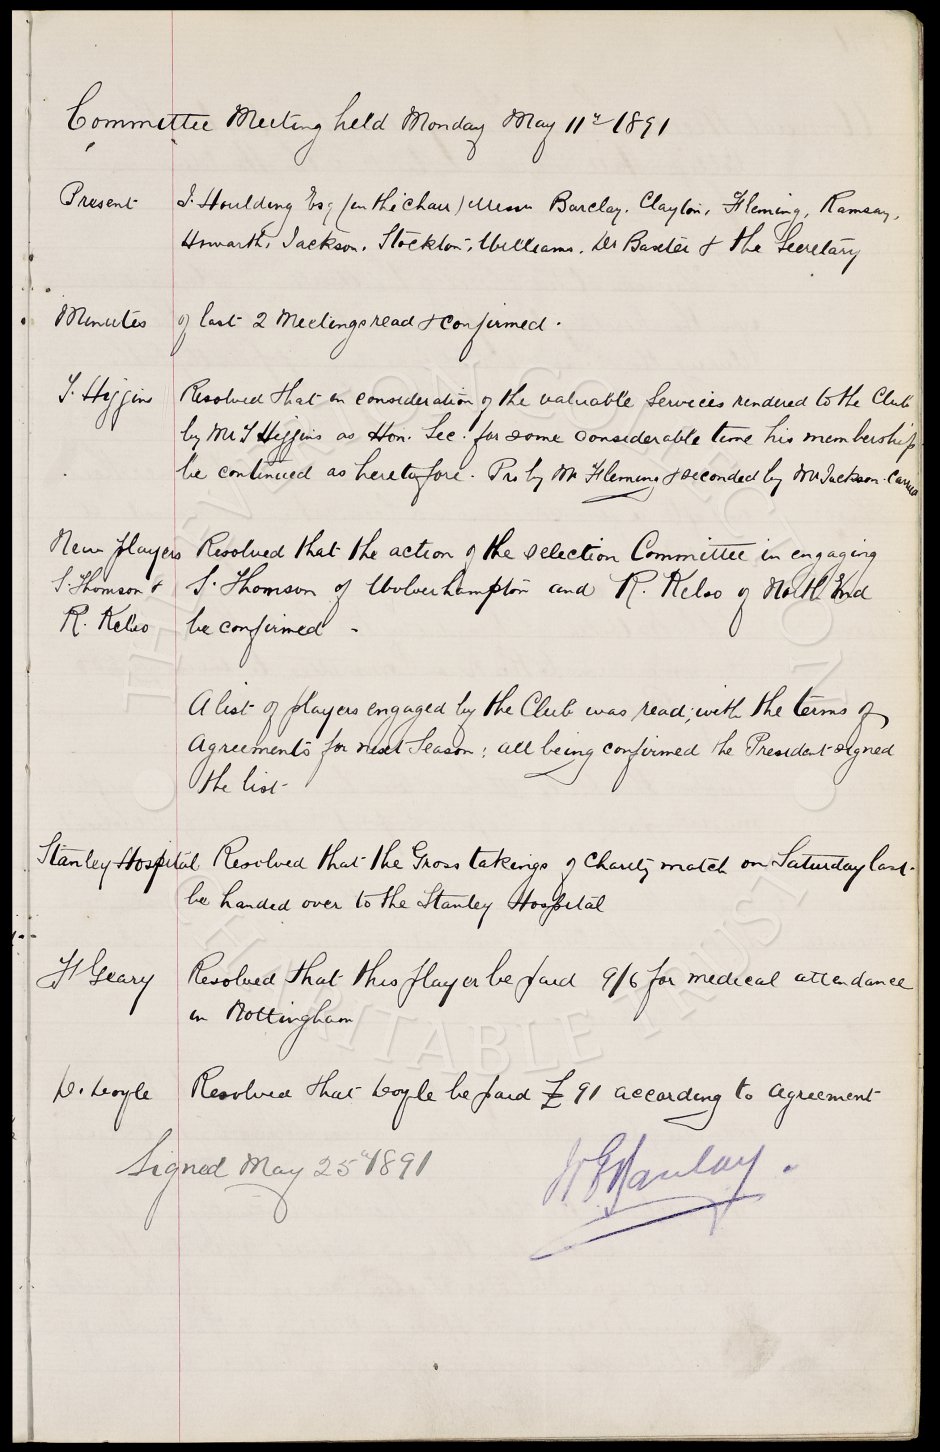 Committee Meeting held Monday May 11th 1891
Present J. Houlding Esq (in the chair) Messrs Barclay, Clayton, Fleming, Ramsay,
Howarth, Jackson, Stockton, Williams, Dr Baxter & the Secretary
Minutes of last 2 Meetings read & confirmed.
T. Higgins Resolved that in consideration of the valuable services rendered to the Club
by Mr T Higgins as Hon. Sec. for some considerable time his membership
be continued as heretofore. Pro by Mr Fleming & seconded by Mr Jackson. Carried
New players Resolved that the action of the selection Committee in engaging
S. Thomson & S. Thomson of Wolverhampton and R. Kelso of North End
R. Kelso be confirmed -
A list of players engaged by the Club was read; with the terms of
Agreements for next Season: all being confirmed the President signed
the list
Stanley Hospital Resolved that the Gross takings of Charity match on Saturday last
be handed over to the Stanley Hospital
F Geary Resolved that this player be paid 9/6 for medical attendance
in Nottingham
D. Doyle Resolved that Doyle be paid £91 according to agreement
Signed May 25th 1891
W E Barclay.
THE EVERTON COLLECTION
CHARITABLE TRUST